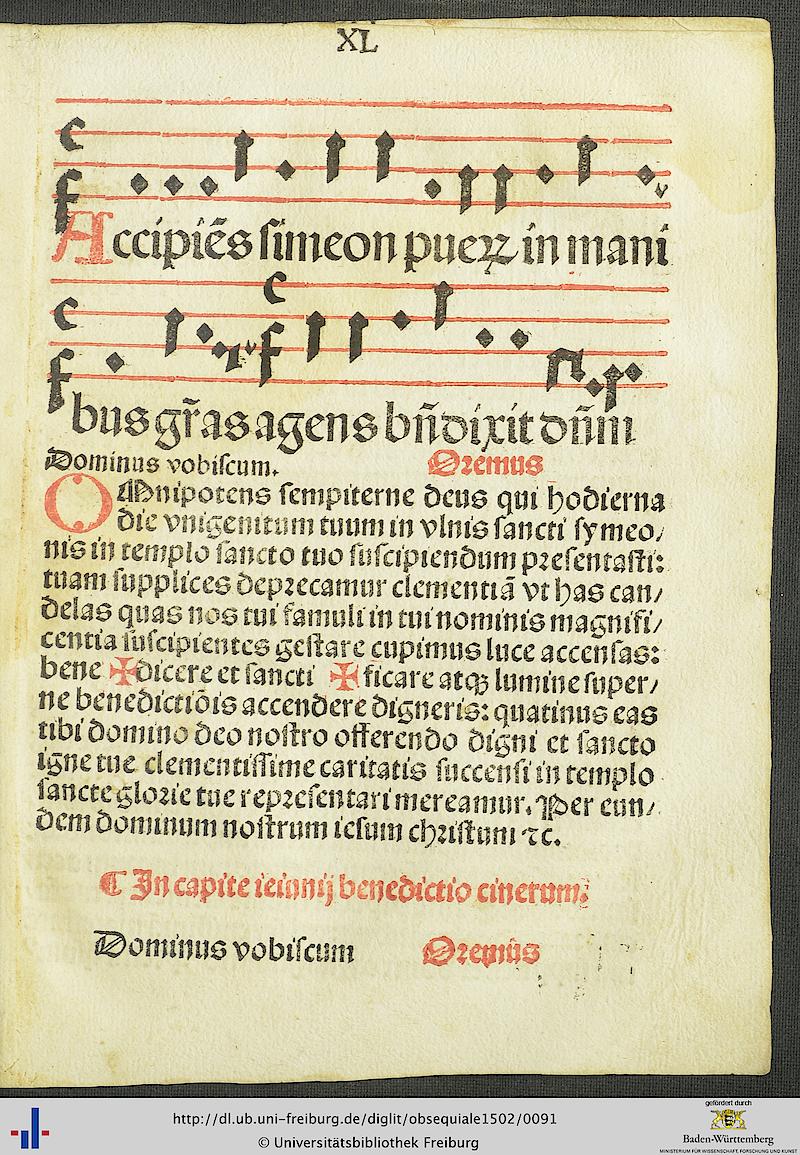 XL
Accipiēs simeon pueꝝ in mani
bus gr̄as agens bn̄dixit dn̄m
Dominus vobiscum. Oremus
OMnipotens sempiterne deus qui hodierna
die vnigenitum tuum in vlnis sancti symeo/
nis in templo sancto tuo suscipiendum presentasti:
tuam supplices deprecamur clementiā vt has can/
delas quas nos tui famuli in tui nominis magnifi/
centia suscipientes gestare cupimus luce accensas:
bene ✠ dicere et sancti ✠ ficare atqꝫ lumine super/
ne benedictiōis accendere digneris: quatinus eas
tibi domino deo nostro offerendo digni et sancto
igne tue clementissime caritatis succensi in templo
sancte glorie tue representari mereamur. Per eun/
dem dominum nostrum iesum christum ⁊c.
¶ In capite ieiunij benedictio cinerum.
Dominus vobiscum Oremus
http://dl.ub.uni-freiburg.de/diglit/obsequiale1502/0091
© Universitätsbibliothek Freiburg
gefördert durch
Baden-Württemberg
MINISTERIUM FÜR WISSENSCHAFT, FORSCHUNG UND KUNST